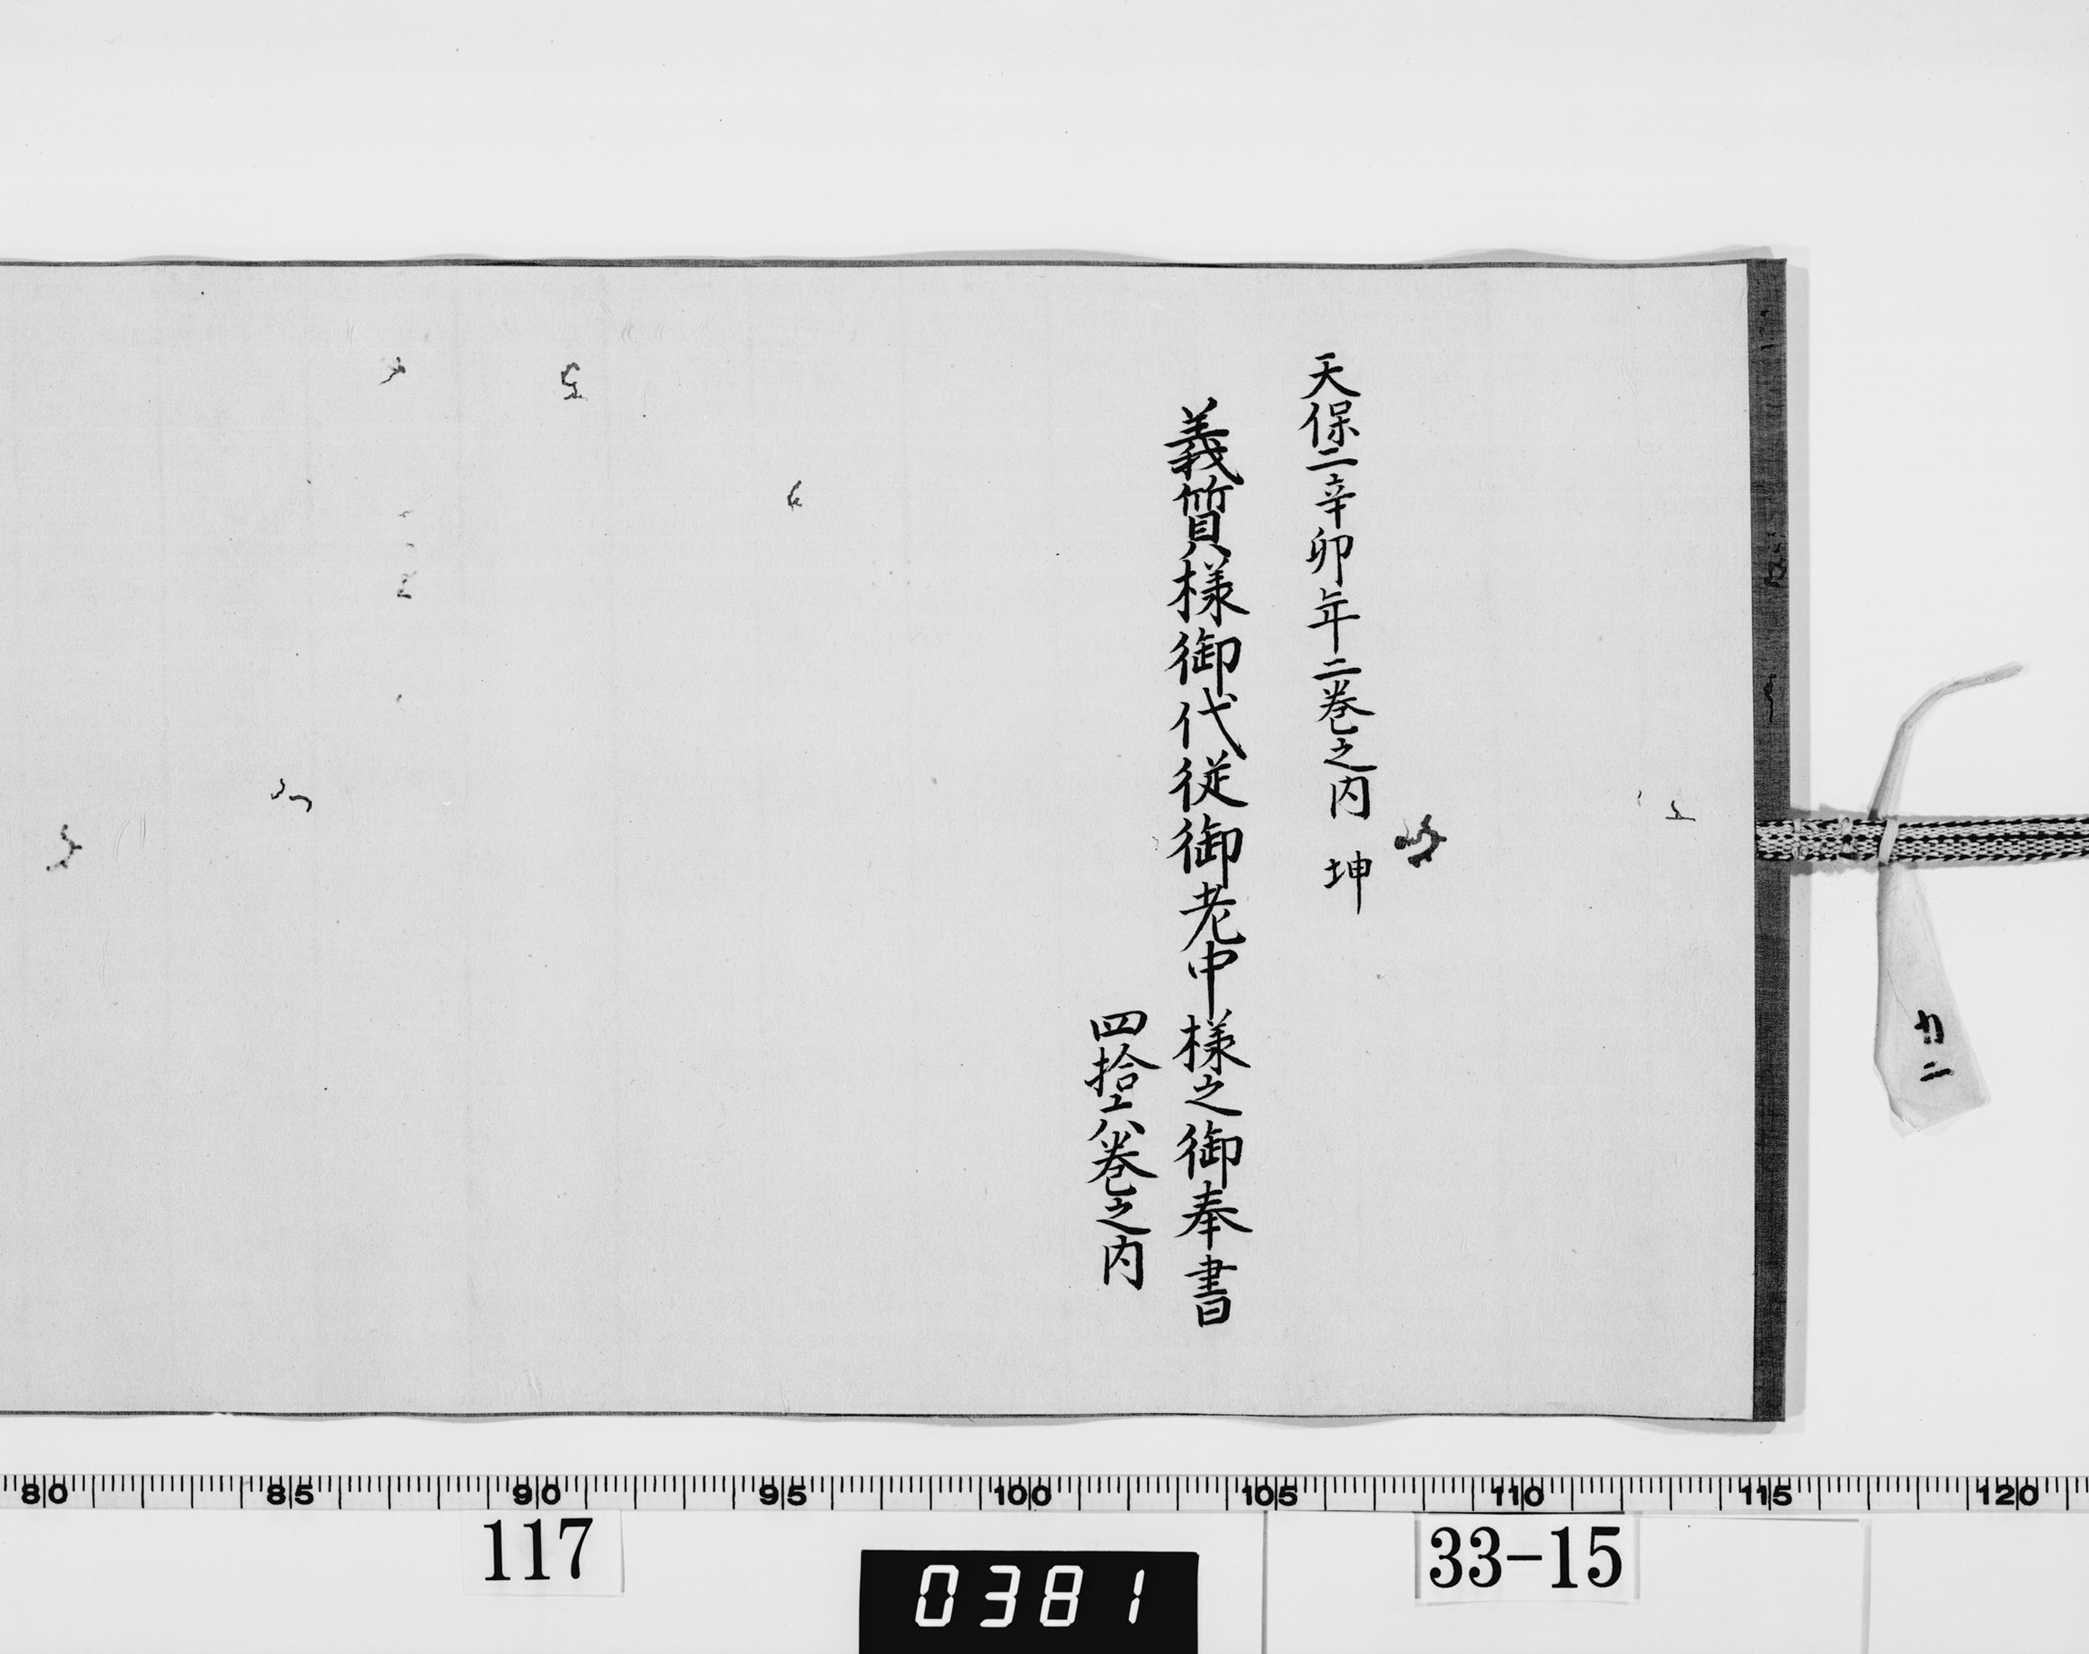 天保二辛卯年二巻之内 坤
義質様御代従御老中様之御奉書
四拾六巻之内
80 85 90 95 100 105 110 115 120
117
0381
33-15